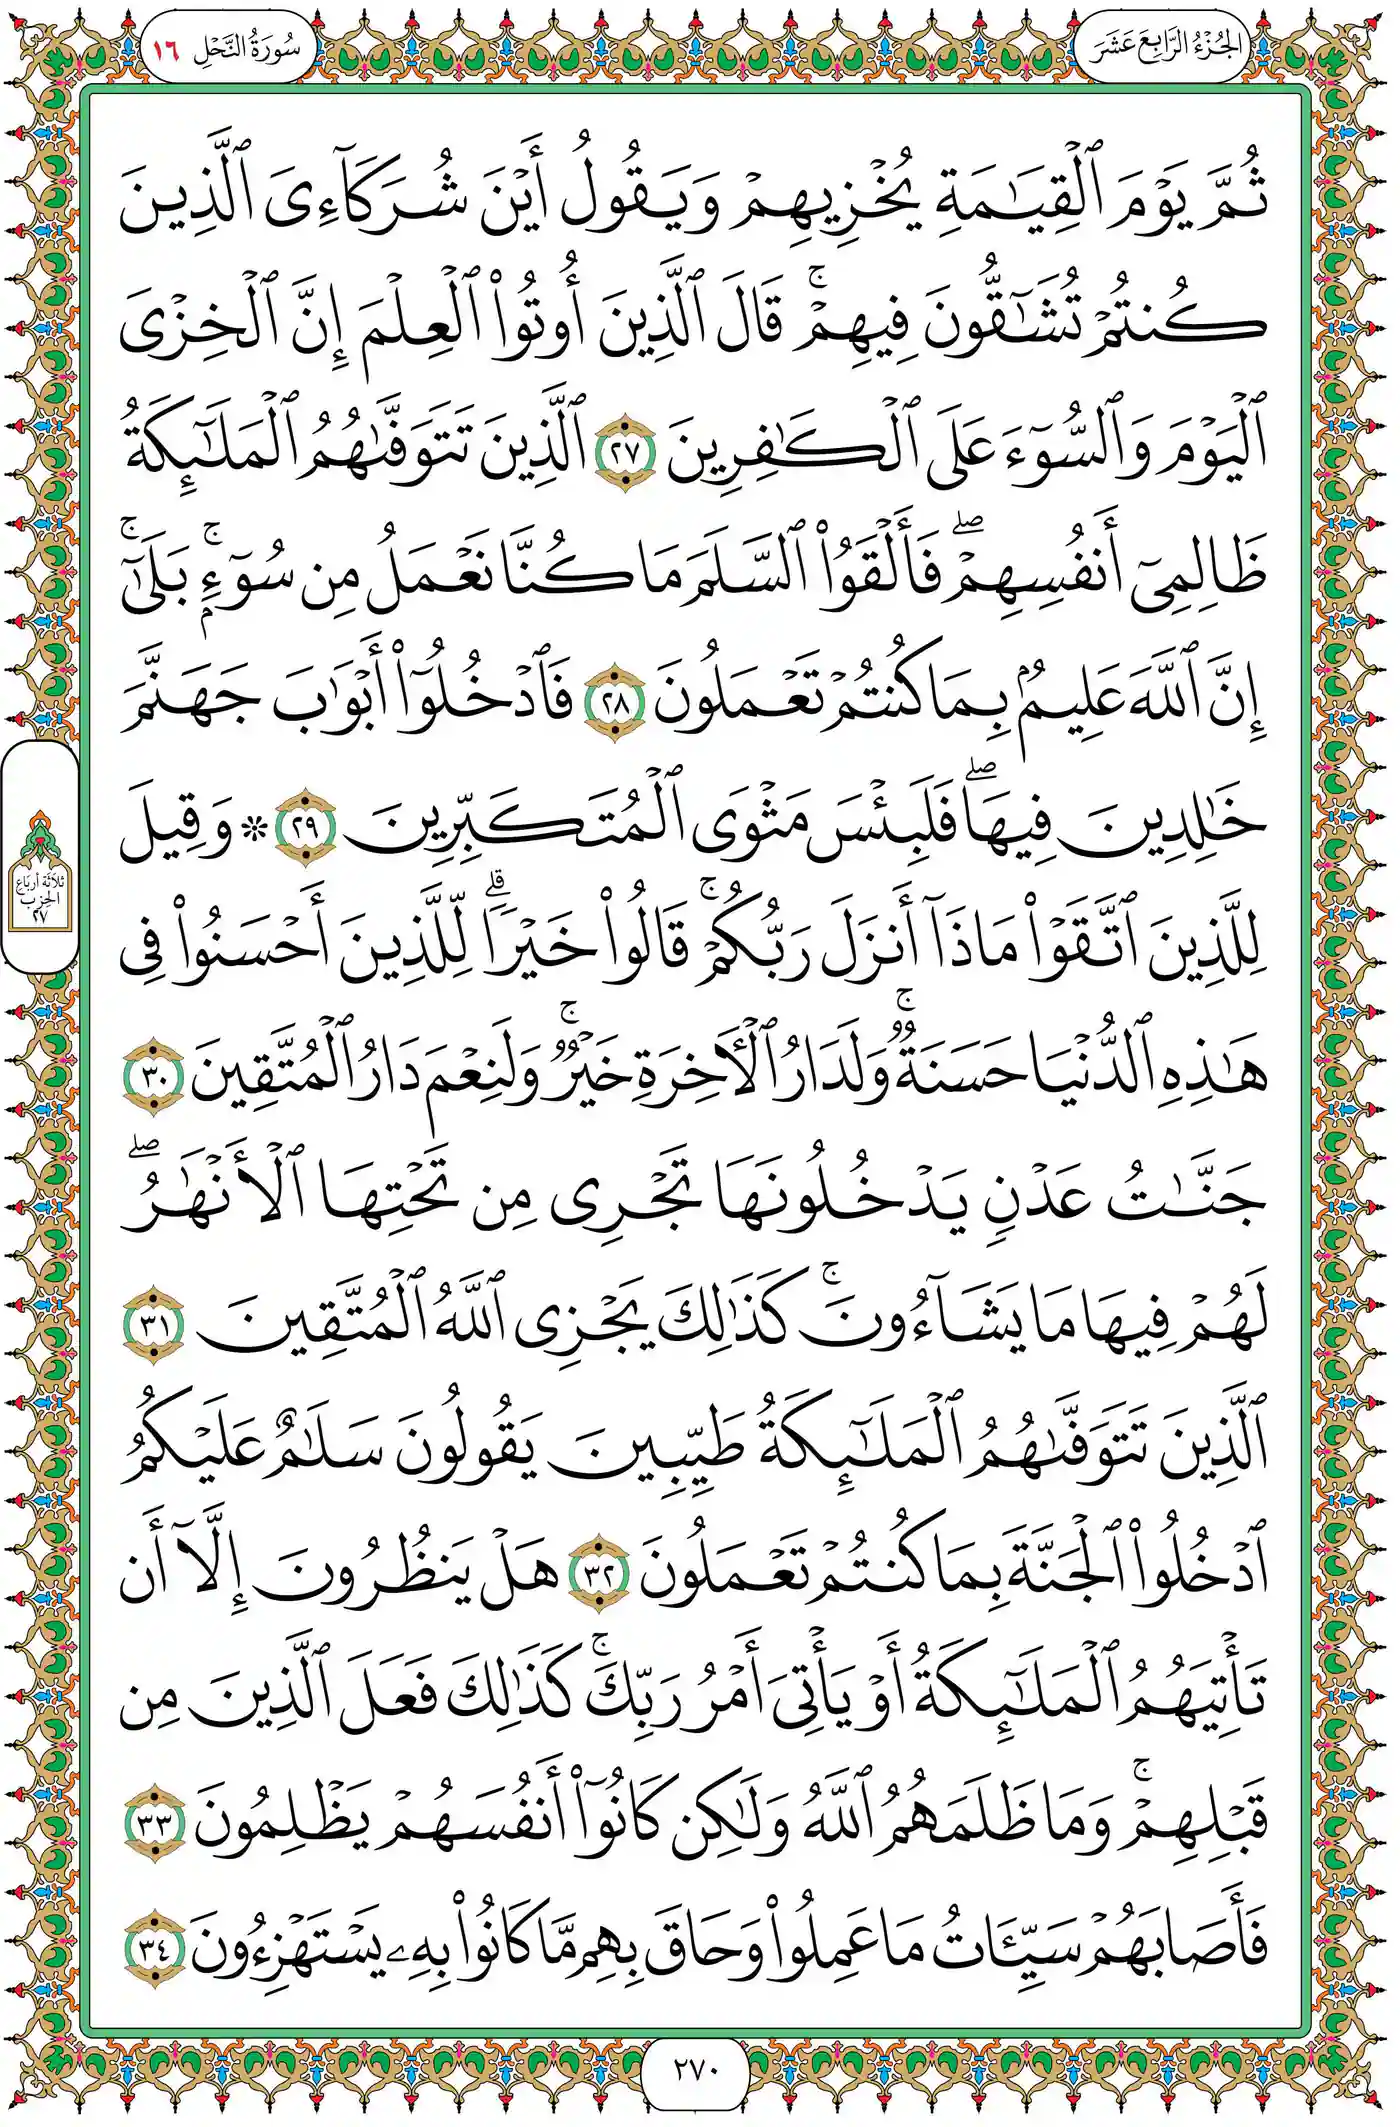 الجُزْءُ الرَّابِعَ عَشَرَ
سُورَةُ النَّحْلِ ١٦
ثُمَّ يَوْمَ ٱلْقِيَـٰمَةِ يُخْزِيهِمْ وَيَقُولُ أَيْنَ شُرَكَآءِىَ ٱلَّذِينَ
كُنتُمْ تُشَـٰٓقُّونَ فِيهِمْ ۚ قَالَ ٱلَّذِينَ أُوتُوا۟ ٱلْعِلْمَ إِنَّ ٱلْخِزْىَ
ٱلْيَوْمَ وَٱلسُّوٓءَ عَلَى ٱلْكَـٰفِرِينَ ٢٧ ٱلَّذِينَ تَتَوَفَّىٰهُمُ ٱلْمَلَـٰٓئِكَةُ
ظَالِمِىٓ أَنفُسِهِمْ ۖ فَأَلْقَوُا۟ ٱلسَّلَمَ مَا كُنَّا نَعْمَلُ مِن سُوٓءٍۭ ۚ بَلَىٰٓ ۚ
إِنَّ ٱللَّهَ عَلِيمٌۢ بِمَا كُنتُمْ تَعْمَلُونَ ٢٨ فَٱدْخُلُوٓا۟ أَبْوَٰبَ جَهَنَّمَ
خَـٰلِدِينَ فِيهَا ۖ فَلَبِئْسَ مَثْوَى ٱلْمُتَكَبِّرِينَ ٢٩ ۞ وَقِيلَ
لِلَّذِينَ ٱتَّقَوْا۟ مَاذَآ أَنزَلَ رَبُّكُمْ ۚ قَالُوا۟ خَيْرًا ۗ لِّلَّذِينَ أَحْسَنُوا۟ فِى
هَـٰذِهِ ٱلدُّنْيَا حَسَنَةٌ ۚ وَلَدَارُ ٱلْـَٔاخِرَةِ خَيْرٌ ۚ وَلَنِعْمَ دَارُ ٱلْمُتَّقِينَ ٣٠
جَنَّـٰتُ عَدْنٍ يَدْخُلُونَهَا تَجْرِى مِن تَحْتِهَا ٱلْأَنْهَـٰرُ ۖ
لَهُمْ فِيهَا مَا يَشَآءُونَ ۚ كَذَٰلِكَ يَجْزِى ٱللَّهُ ٱلْمُتَّقِينَ ٣١
ٱلَّذِينَ تَتَوَفَّىٰهُمُ ٱلْمَلَـٰٓئِكَةُ طَيِّبِينَ يَقُولُونَ سَلَـٰمٌ عَلَيْكُمُ
ٱدْخُلُوا۟ ٱلْجَنَّةَ بِمَا كُنتُمْ تَعْمَلُونَ ٣٢ هَلْ يَنظُرُونَ إِلَّآ أَن
تَأْتِيَهُمُ ٱلْمَلَـٰٓئِكَةُ أَوْ يَأْتِىَ أَمْرُ رَبِّكَ ۚ كَذَٰلِكَ فَعَلَ ٱلَّذِينَ مِن
قَبْلِهِمْ ۚ وَمَا ظَلَمَهُمُ ٱللَّهُ وَلَـٰكِن كَانُوٓا۟ أَنفُسَهُمْ يَظْلِمُونَ ٣٣
فَأَصَابَهُمْ سَيِّـَٔاتُ مَا عَمِلُوا۟ وَحَاقَ بِهِم مَّا كَانُوا۟ بِهِۦ يَسْتَهْزِءُونَ ٣٤
ثلاثة أرباع
الحزب
٢٧
٢٧٠